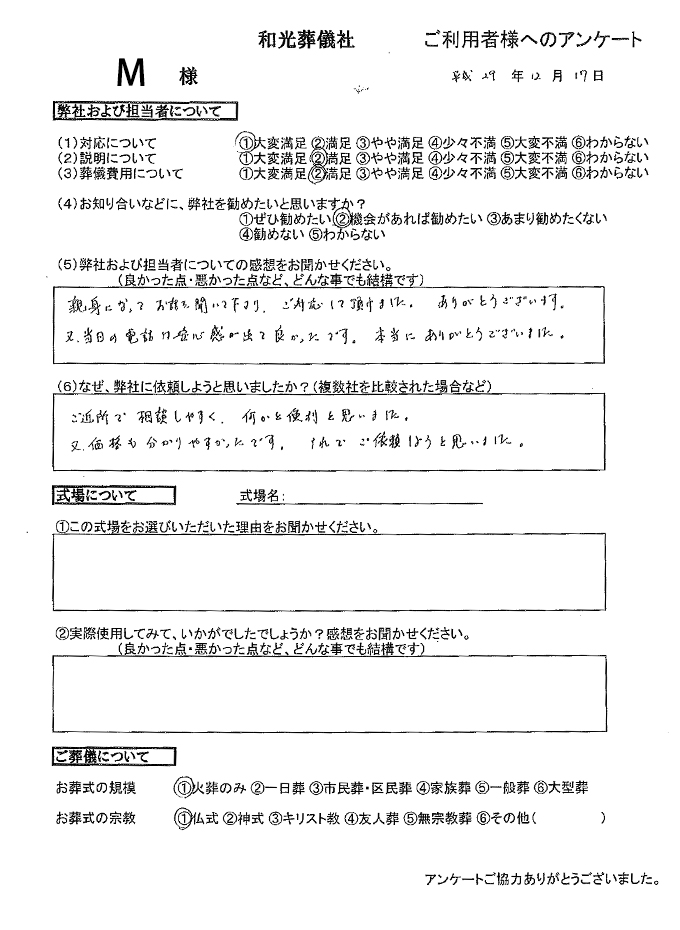 和光葬儀社 ご利用者様へのアンケート
M 様 平成 29 年 12 月 17日
弊社および担当者について
(1)対応について ①大変満足 ②満足 ③やや満足 ④少々不満 ⑤大変不満 ⑥わからない
(2)説明について ①大変満足 ②満足 ③やや満足 ④少々不満 ⑤大変不満 ⑥わからない
(3)葬儀費用について ①大変満足 ②満足 ③やや満足 ④少々不満 ⑤大変不満 ⑥わからない
(4)お知り合いなどに、弊社を勧めたいと思いますか?
①ぜひ勧めたい ②機会があれば勧めたい ③あまり勧めたくない
④勧めない ⑤わからない
(5)弊社および担当者についての感想をお聞かせください。
(良かった点・悪かった点など、どんな事でも結構です)
親身になって お話を聞いて下さり、ご対応して頂けました。 ありがとうございます。
又、当日の電話は安心感が出て良かったです。 本当に ありがとうございました。
(6)なぜ、弊社に依頼しようと思いましたか?(複数社を比較された場合など)
ご近所で 相談しやすく、何かと便利と思いました。
又、価格も分かりやすかったです。 それで ご依頼しようと思いました。
式場について 式場名:
①この式場をお選びいただいた理由をお聞かせください。
②実際使用してみて、いかがでしたでしょうか?感想をお聞かせください。
(良かった点・悪かった点など、どんな事でも結構です)
ご葬儀について
お葬式の規模 ①火葬のみ ②一日葬 ③市民葬・区民葬 ④家族葬 ⑤一般葬 ⑥大型葬
お葬式の宗教 ①仏式 ②神式 ③キリスト教 ④友人葬 ⑤無宗教葬 ⑥その他( )
アンケートご協力ありがとうございました。